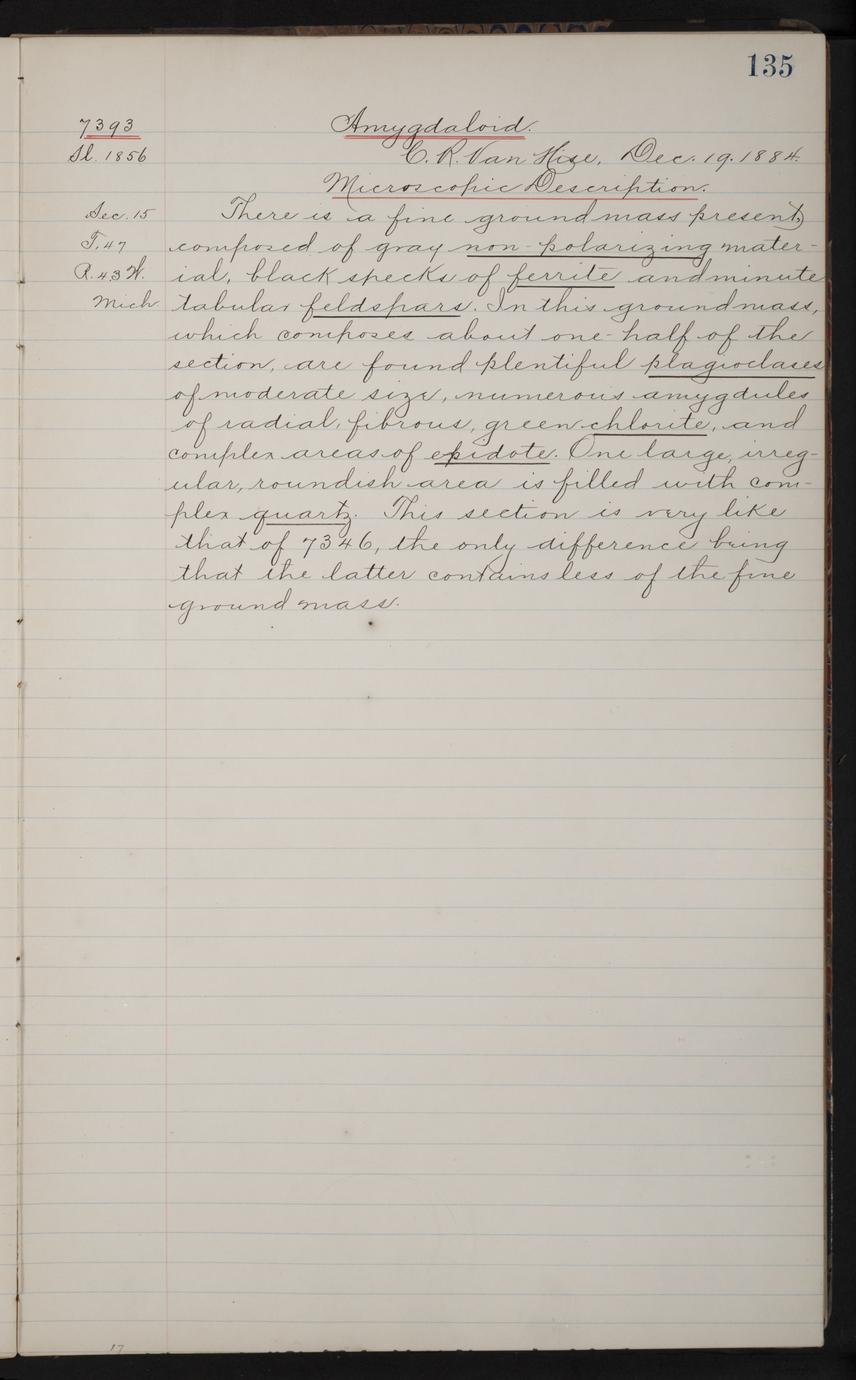 135
7393 Amygdaloid.
Sl. 1856 C. R. Van Hise, Dec. 19. 1884.
Microscopic Description.
Sec. 15 There is a fine groundmass present,
T. 47 composed of gray non-polarizing mater-
R. 43 W. ial, black specks of ferrite and minute
Mich tabular feldspars. In this groundmass,
which composes about one-half of the
section, are found plentiful plagioclases
of moderate size, numerous amygdules
of radial, fibrous, green chlorite, and
complex areas of epidote. One large, irreg-
ular, roundish area is filled with com-
plex quartz. This section is very like
that of 7346, the only difference being
that the latter contains less of the fine
ground mass.
17